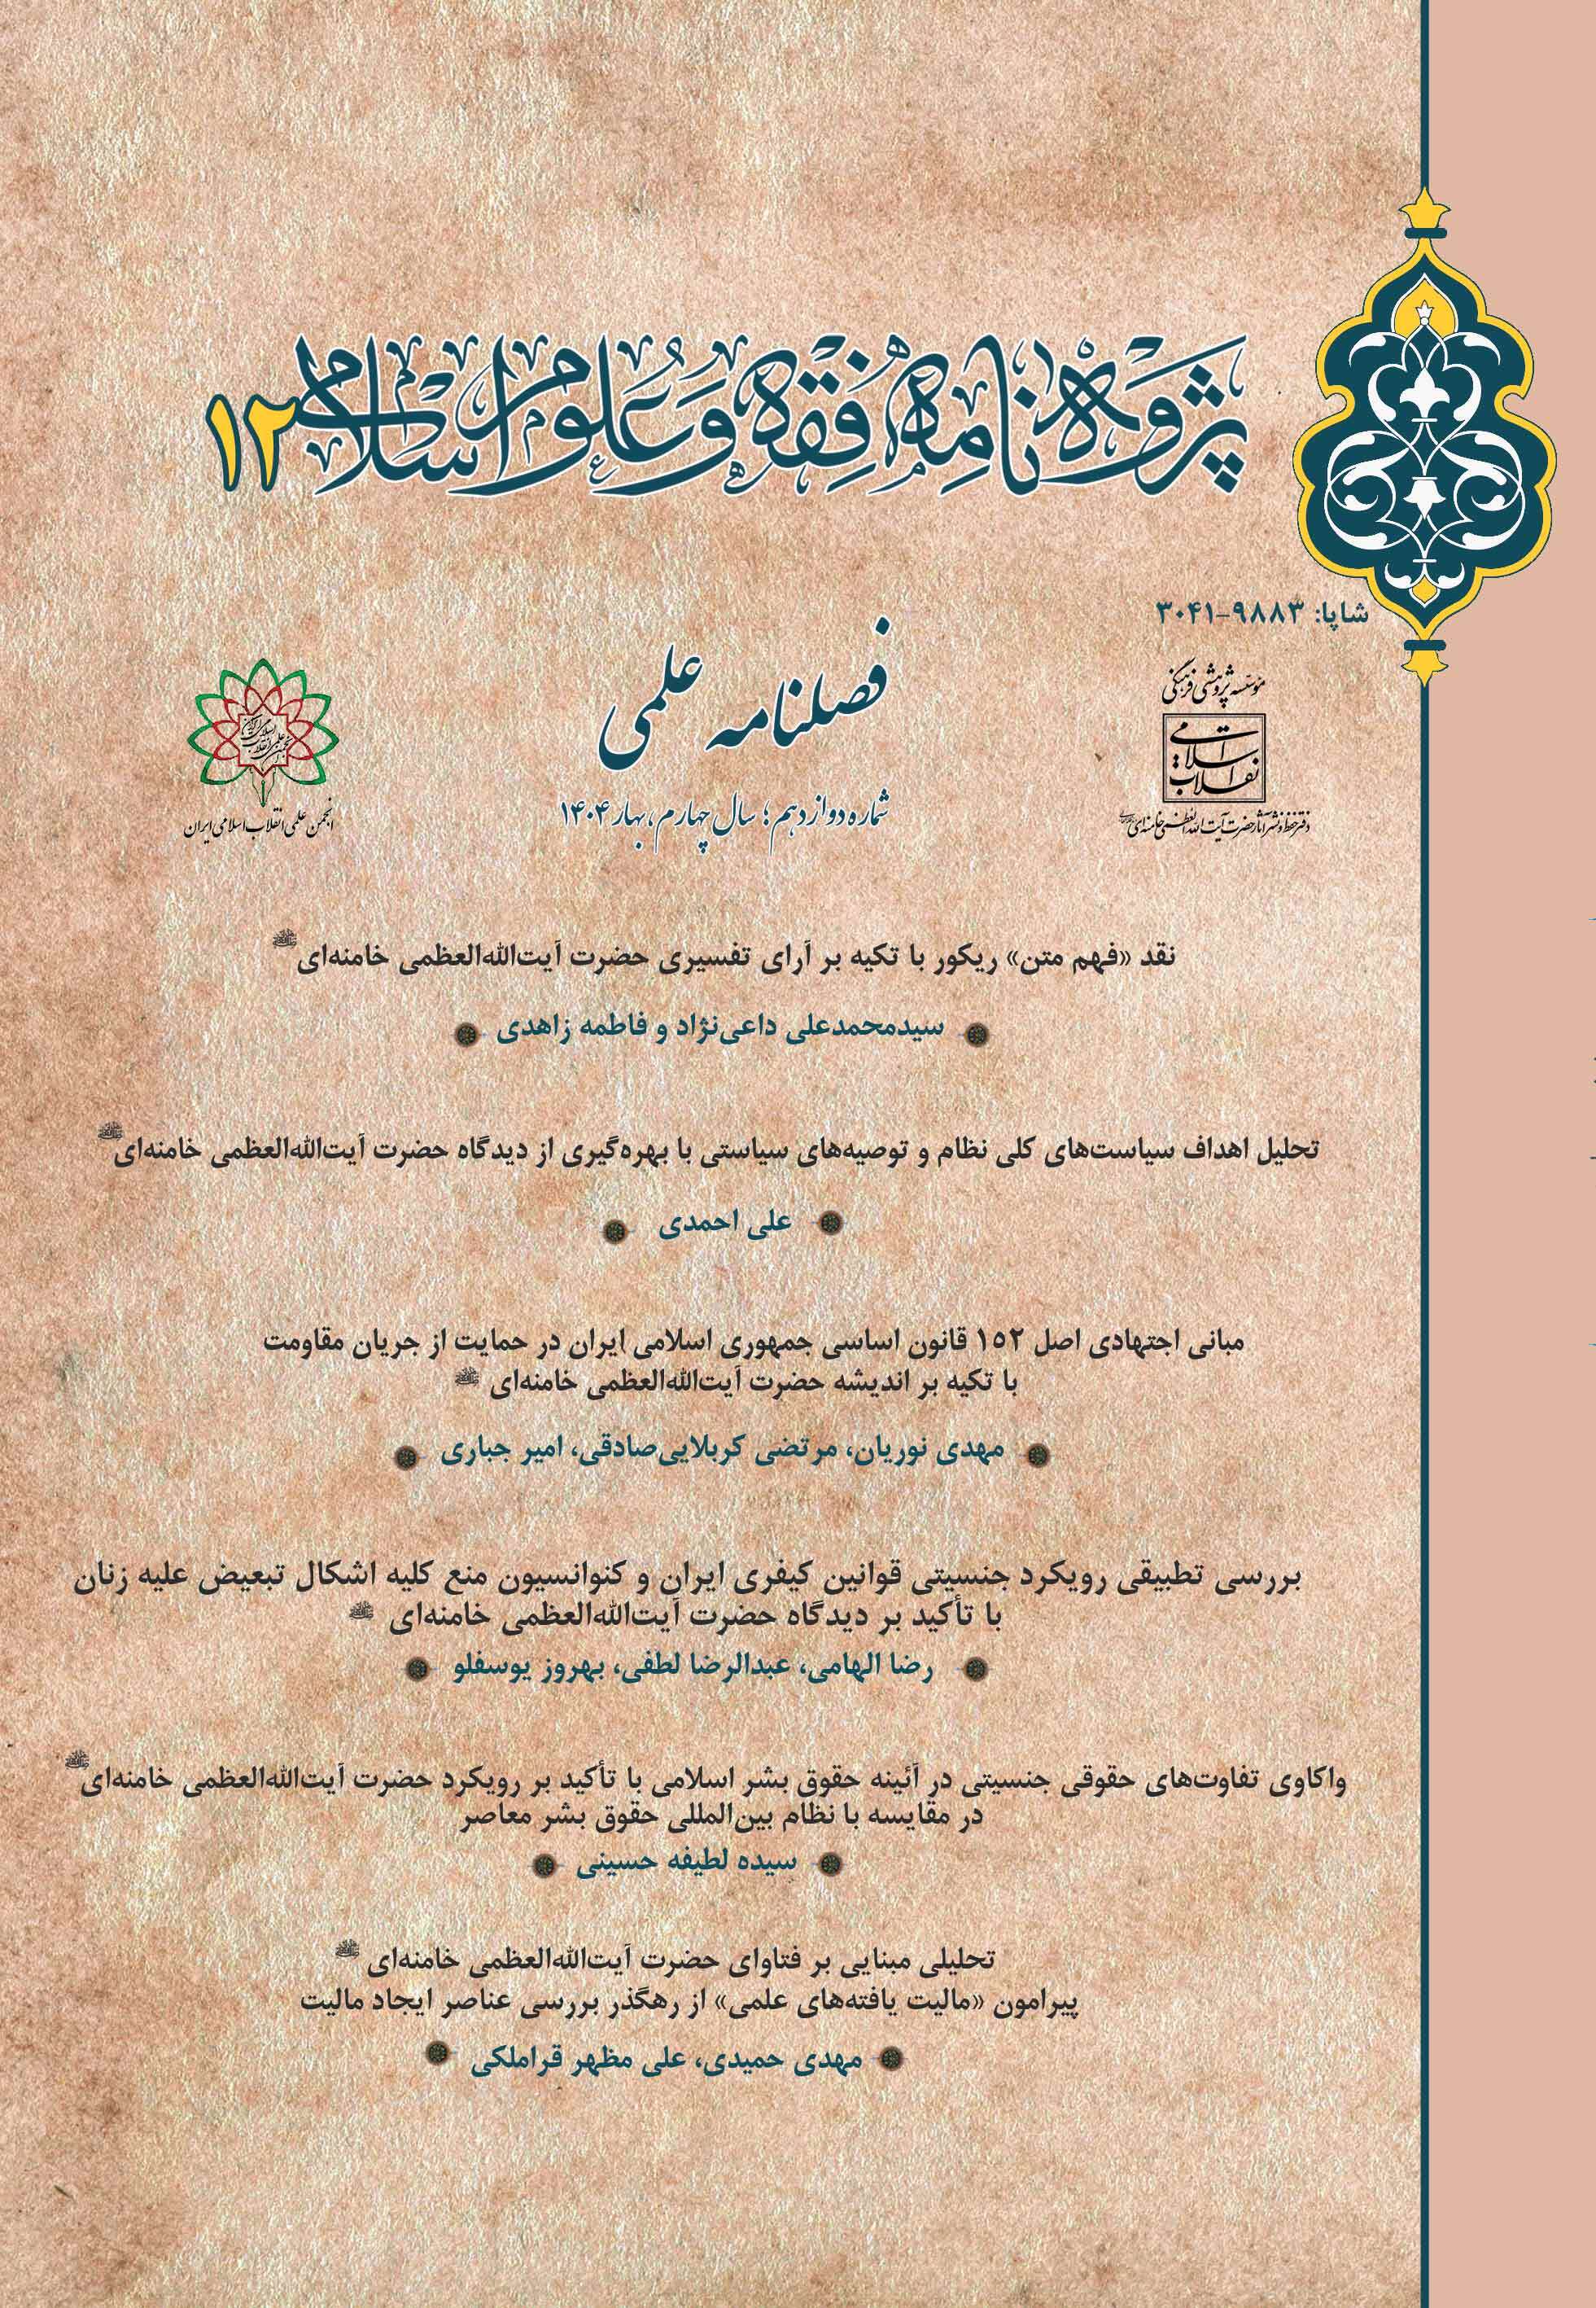 پژوهه‌نامه فقه و علوم اسلامی ۱۲
شاپا: ۹۸۸۳-۳۰۴۱
مؤسسه پژوهشی فرهنگی
انقلاب اسلامی
دفتر حفظ و نشر آثار حضرت آیت‌الله‌العظمی خامنه‌ای
فصلنامه علمی
شماره دوازدهم؛ سال چهارم، بهار ۱۴۰۴
انجمن علمی انقلاب اسلامی ایران
نقد «فهم متن» ریکور با تکیه بر آرای تفسیری حضرت آیت‌الله‌العظمی خامنه‌ای
سیدمحمدعلی داعی‌نژاد و فاطمه زاهدی
تحلیل اهداف سیاست‌های کلی نظام و توصیه‌های سیاستی با بهره‌گیری از دیدگاه حضرت آیت‌الله‌العظمی خامنه‌ای
علی احمدی
مبانی اجتهادی اصل ۱۵۲ قانون اساسی جمهوری اسلامی ایران در حمایت از جریان مقاومت
با تکیه بر اندیشه حضرت آیت‌الله‌العظمی خامنه‌ای
مهدی نوریان، مرتضی کربلایی‌صادقی، امیر جباری
بررسی تطبیقی رویکرد جنسیتی قوانین کیفری ایران و کنوانسیون منع کلیه اشکال تبعیض علیه زنان
با تأکید بر دیدگاه حضرت آیت‌الله‌العظمی خامنه‌ای
رضا الهامی، عبدالرضا لطفی، بهروز یوسفلو
واکاوی تفاوت‌های حقوقی جنسیتی در آئینه حقوق بشر اسلامی با تأکید بر رویکرد حضرت آیت‌الله‌العظمی خامنه‌ای
در مقایسه با نظام بین‌المللی حقوق بشر معاصر
سیده لطیفه حسینی
تحلیلی مبنایی بر فتاوای حضرت آیت‌الله‌العظمی خامنه‌ای
پیرامون «مالیت یافته‌های علمی» از رهگذر بررسی عناصر ایجاد مالیت
مهدی حمیدی، علی مظهر قراملکی